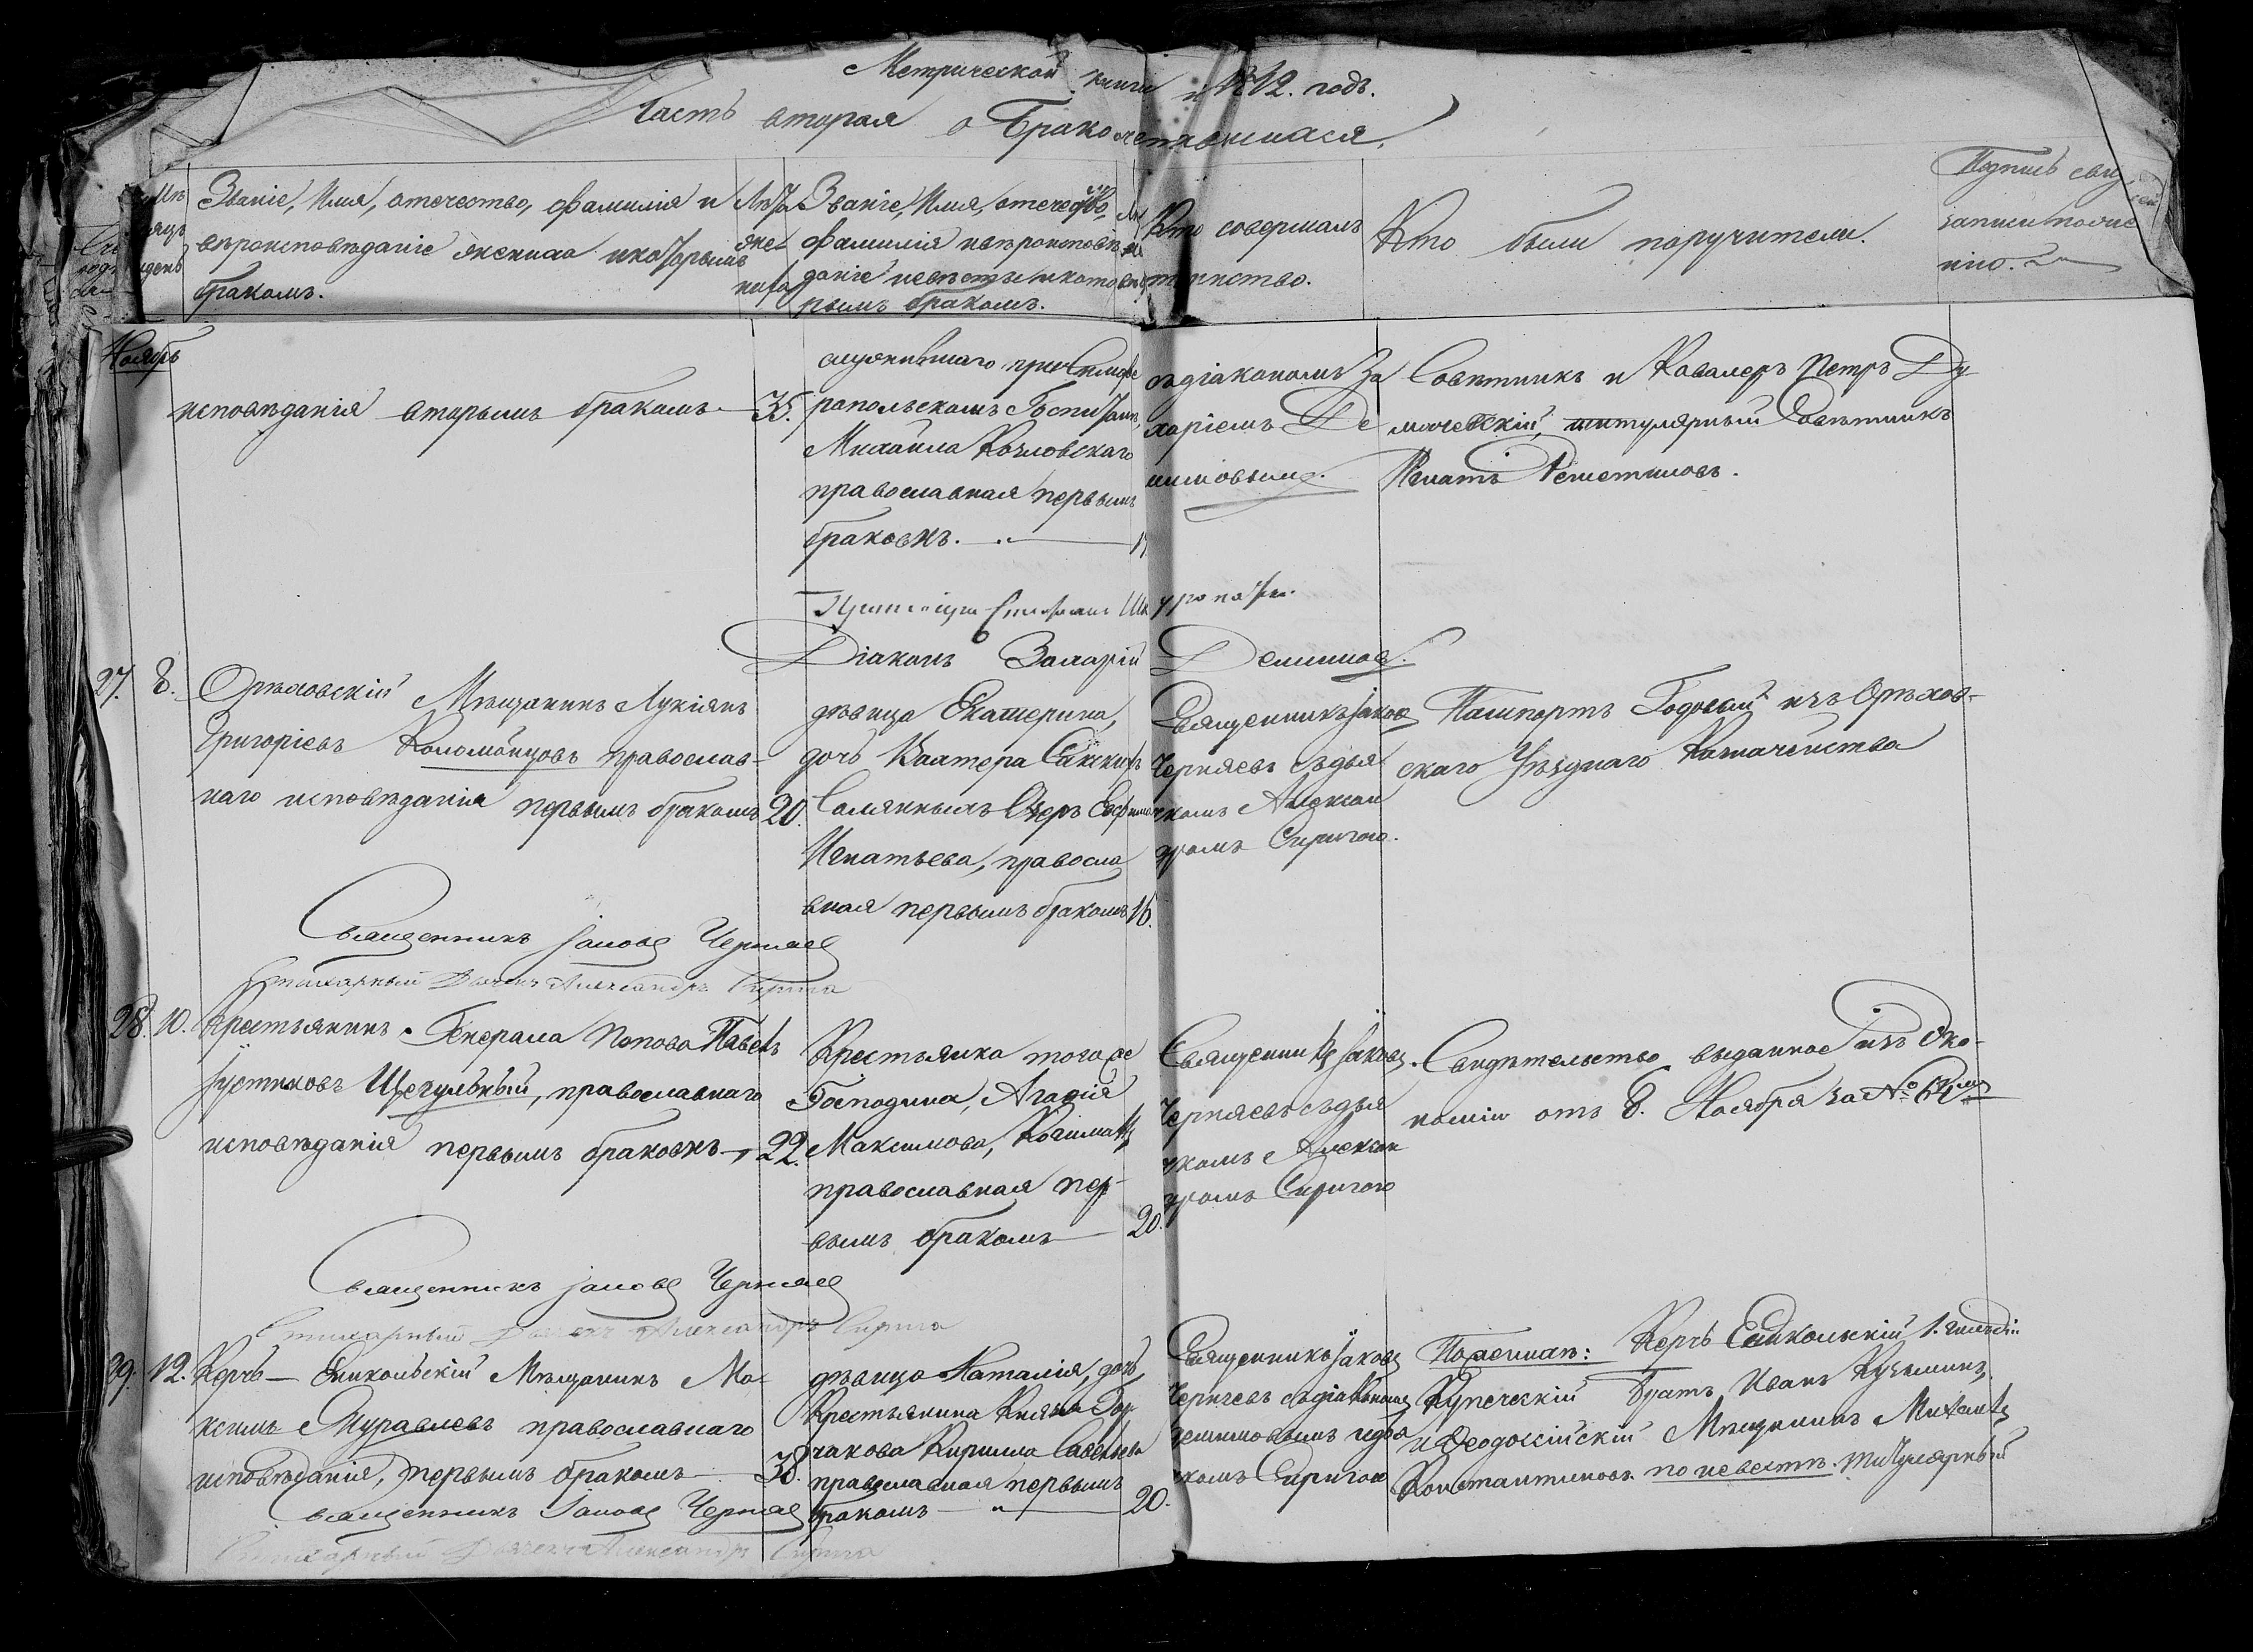 Метрической книги 1842. годъ.
Часть вторая о Бракосочетавшихся.
Званіе, Имя, отечество, фамилія и
вѣроисповѣданіе жениха и которымъ
бракомъ.
Лѣта
же-
ниха
Званіе, Имя, отечество,
фамилія и вѣроисповѣ-
даніе невѣсты и кото-
рымъ бракомъ.
Кто совершалъ
таинство.
Кто были поручители.
Подпись свидѣ
записи
Ноябрь
исповѣданія вторымъ бракомъ. — 35.
служившаго при Симфе
ропольскомъ Госпиталѣ,
Михаила Козловскаго
православная первымъ
бракомъ. —
съ діакономъ За
харіемъ Де
мишовымъ.
Совѣтникъ и Кавалеръ Петръ Ду
мачевскій, титулярный Совѣтникъ
Игнатъ Решетиловъ.
Діаконъ Захарій Демишовъ.
27. 8. Орѣховскій Мѣщанинъ Лукіянъ
Григоріевъ Коломойцовъ православ-
наго исповѣданія первымъ бракомъ 20.
дѣвица Екатерина,
дочь Вахтера Сакскихъ
Соляныхъ Озеръ
Игнатьева, правосла
вная первымъ бракомъ 16.
Священникъ Іаковъ
Черняевъ съ дья
чкомъ Алексан
дромъ Сиригою.
Пашпортъ Годовый изъ Орѣхов-
скаго Уѣзднаго Казначейства
Священникъ Іаковъ Черняевъ
Стихарный Дьячекъ Александръ Сирига
28. 10. Крестьянинъ Генерала Попова Павелъ
Іустиновъ Щегульный, православнаго
исповѣданія первымъ бракомъ — 22.
Крестьянка того же
Господина, Агафія
Максимова,
православная пер-
вымъ бракомъ — 20.
Священникъ Іаковъ
Черняевъ съ дья
чкомъ Алексан
дромъ Сиригою
Свидѣтельство выданное изъ Эко-
номіи отъ 8. Ноября за №
Священникъ Іаковъ Черняевъ
Стихарный Дьячекъ Александръ Сирига
29. 12. Керчь-Еникольскій Мѣщанинъ Ма-
ксимъ Муравлевъ православнаго
исповѣданія, первымъ бракомъ — 38.
дѣвица Наталія, дочь
Крестьянина Князя Гор
чакова Кирилла Савельева
православная первымъ
бракомъ — 20.
Священникъ Іаковъ
Черняевъ съ діакономъ
Демишовымъ и дья
чкомъ Сиригою
По женихѣ: Керчь Еникольскій 1. гильдіи
Купеческій братъ Иванъ Кузьминъ,
и Ѳеодосійскій Мѣщанинъ Михаилъ
Константиновъ. по невестѣ. титулярный
Священникъ Іаковъ Черняевъ
Стихарный Дьячекъ Александръ Сирига